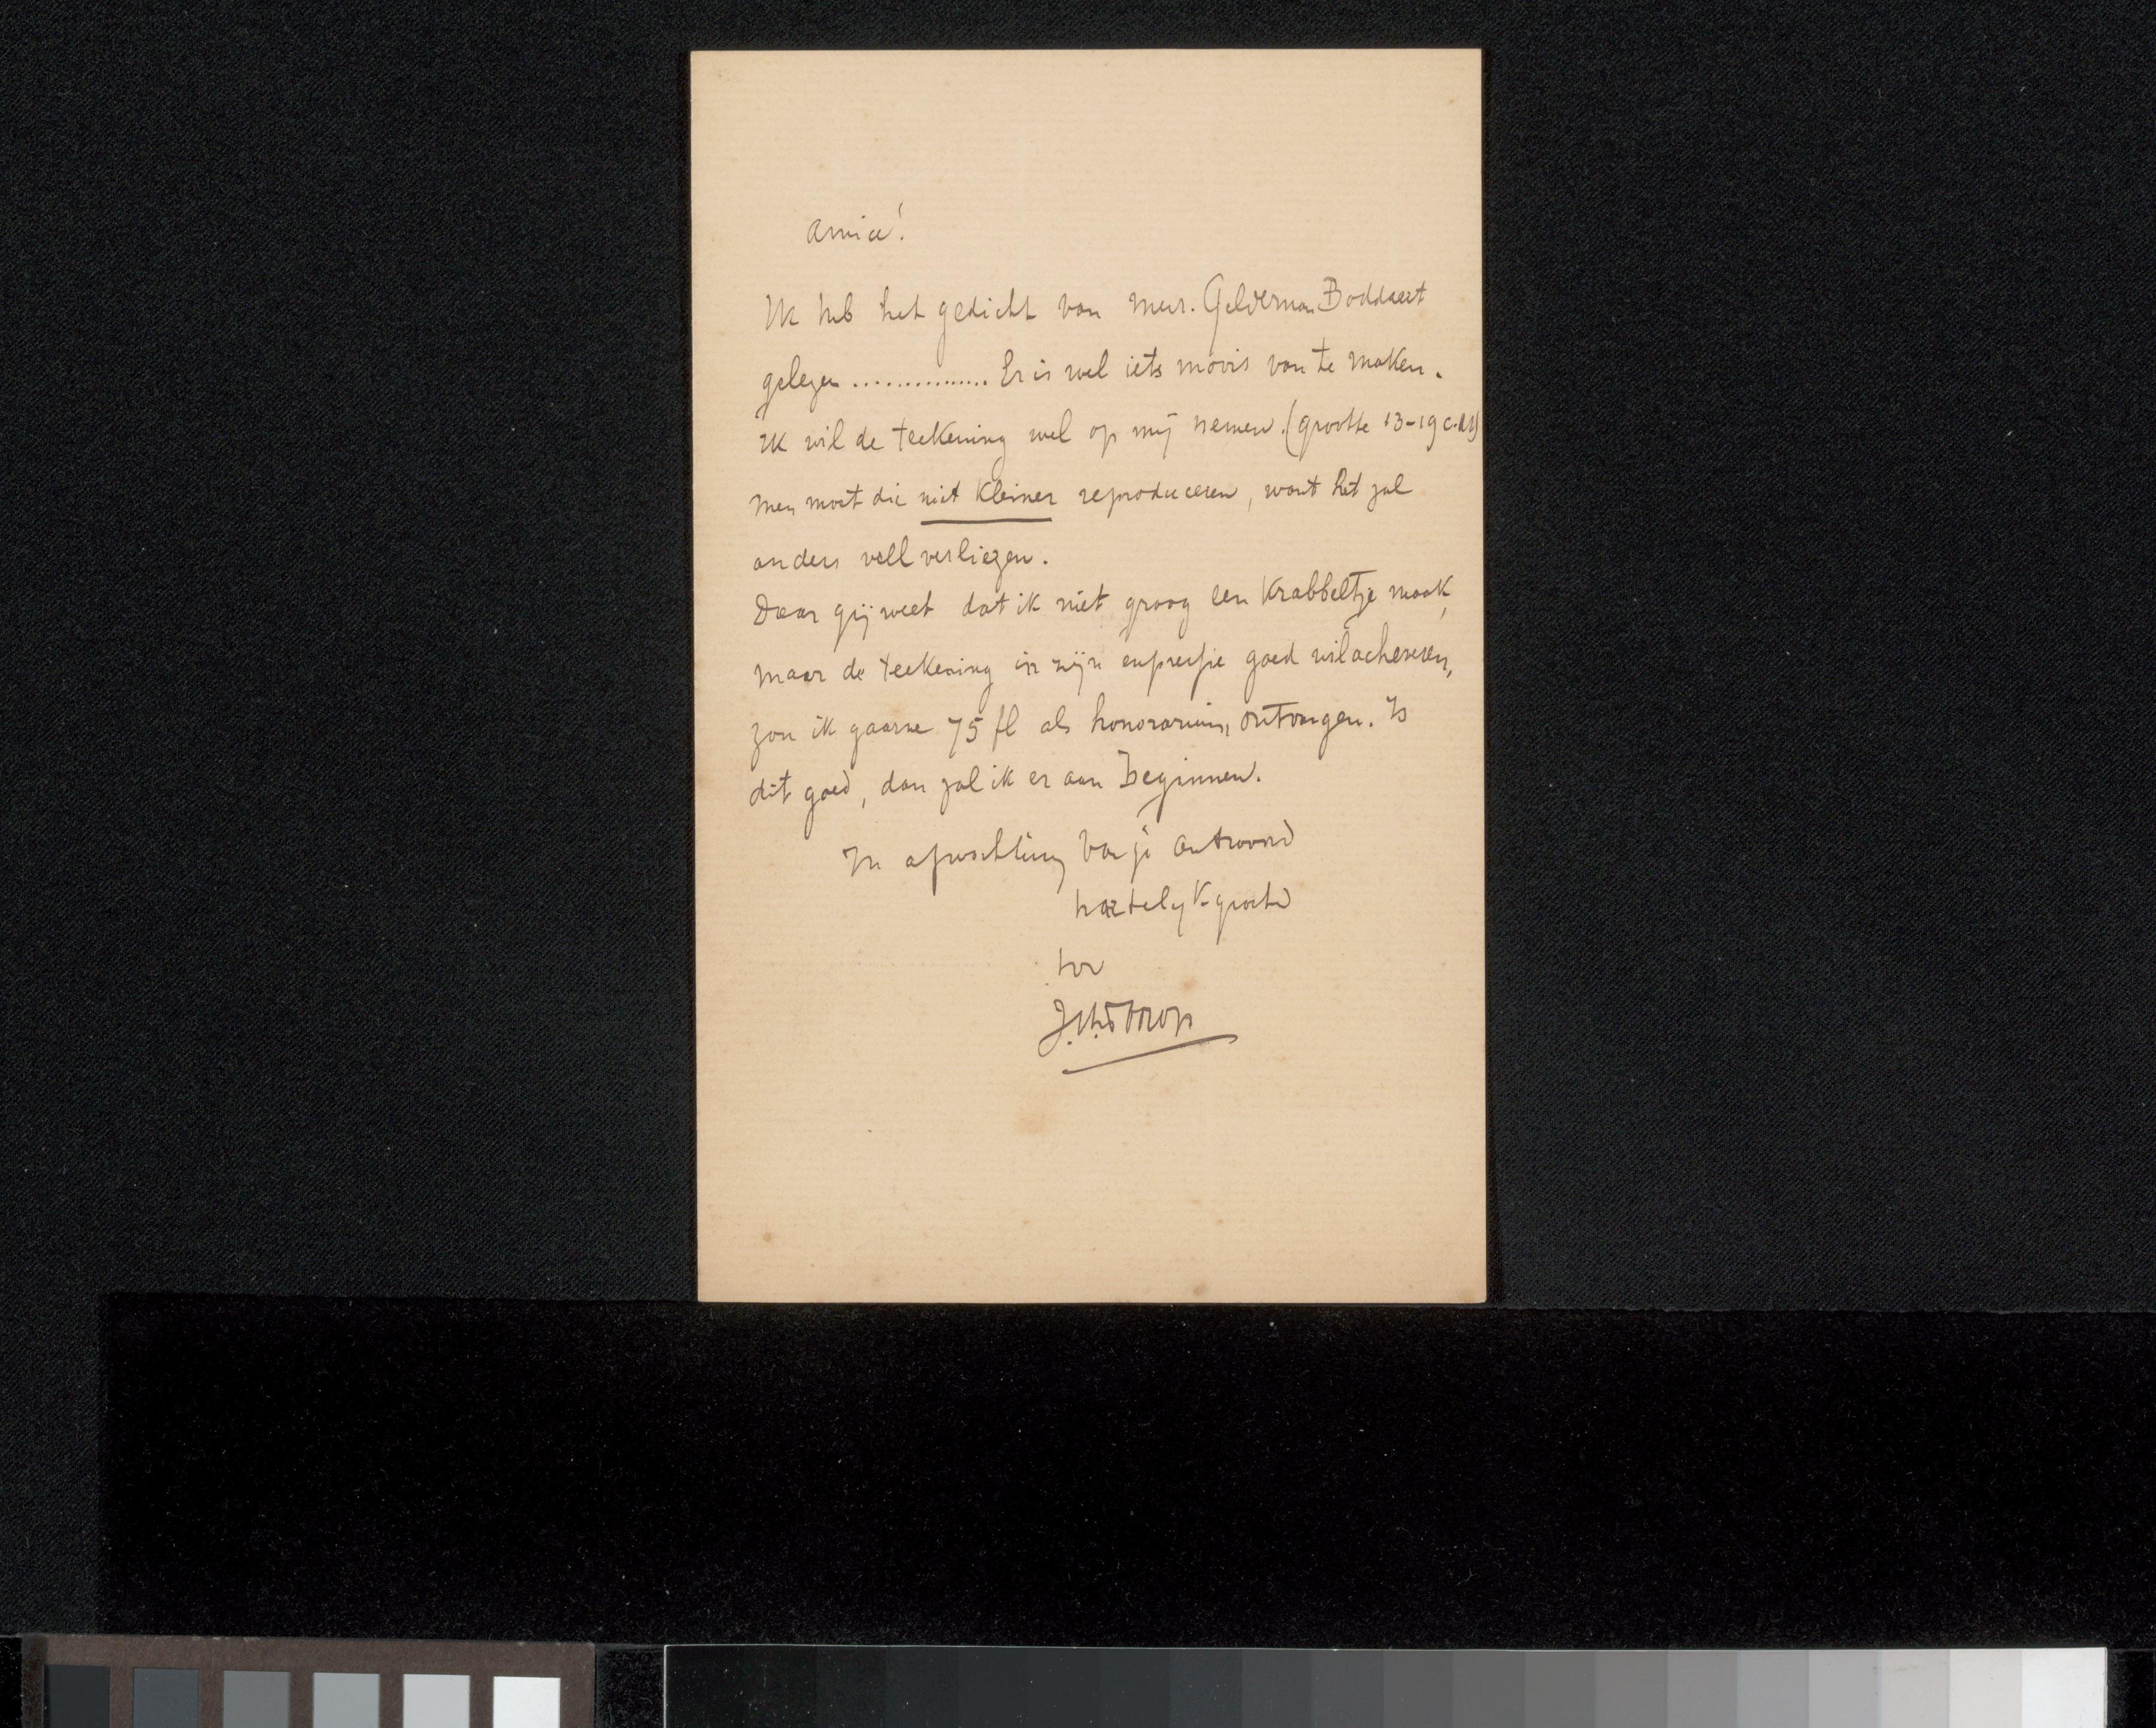 Amice!
Ik heb het gedicht van mevr. Gelderman Boddaert
gelezen ............... Er is wel iets moois van te maken.
Ik wil de teekening wel op mij nemen. (grootte 13-19 c.M)
Men moet die niet kleiner reproduceren, want het zal
anders veel verliezen.
Daar gij weet dat ik niet graag een Krabbeltje maak,
maar de teekening in zijn expressie goed wil acheveren,
zou ik gaarne 75 fl als honorarium ontvangen. Is
dit goed, dan zal ik er aan beginnen.
In afwachting van je antwoord
hartelyk groetend
tov
J.Th.Toorop